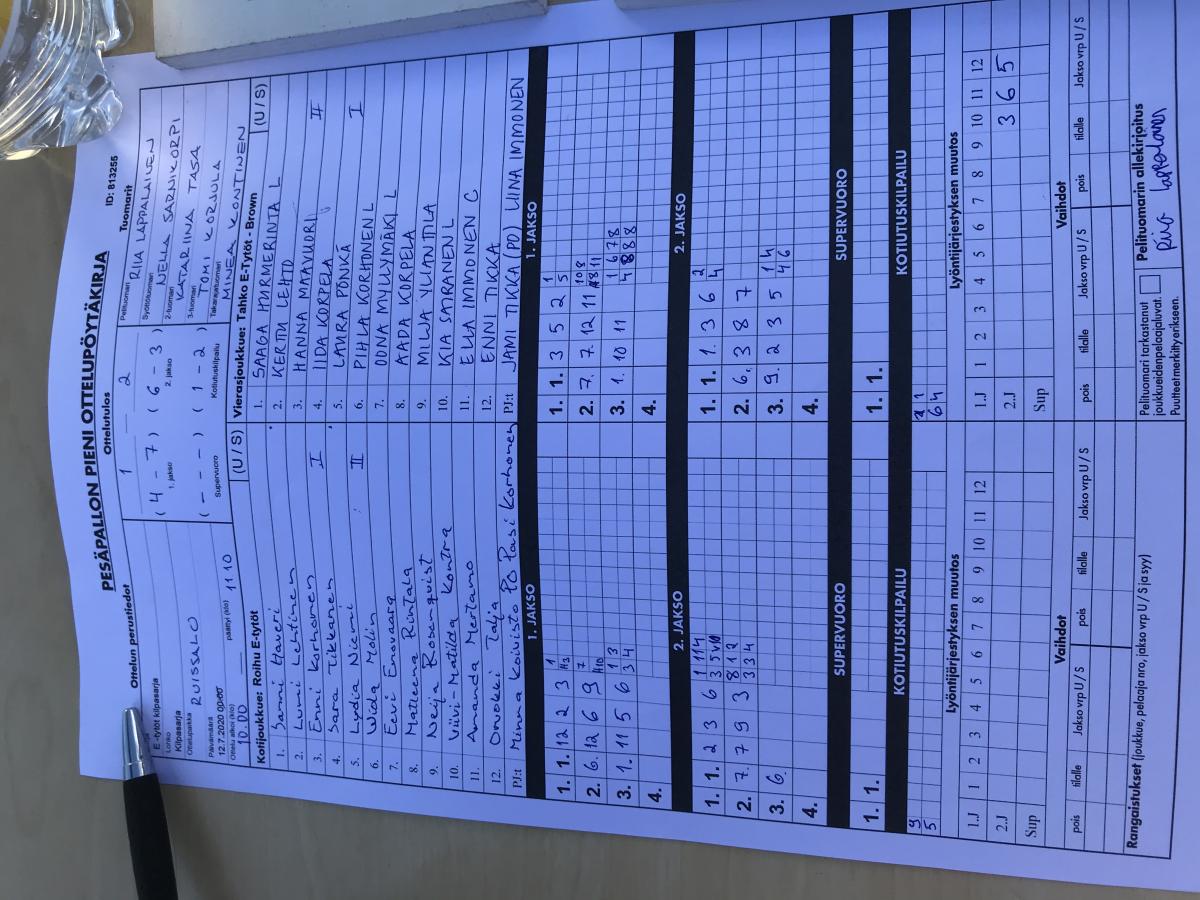 PESÄPALLON PIENI OTTELUPÖYTÄKIRJA
ID: 813255
Ottelun perustiedot
Ottelutulos
Tuomarit
E-tytöt kilpasarja
Lohko
Kilpasarja
Ottelupaikka
RUISSALO
Päivämäärä
12.7.2020
Ottelu alkoi (klo)
10.00
päättyi (klo)
11 10
1 2
( 4 - 7 ) ( 6 - 3 )
1. jakso 2. jakso
( - - - ) ( 1 - 2 )
Supervuoro Kotiutuskilpailu
Pelituomari RIIA LAPPALAINEN
Syöttötuomari NELLA SARNIKORPI
2-tuomari KATARIINA TASA
3-tuomari TOMI KORJULA
Takarajatuomari MINEA KONTINEN
Kotijoukkue: Roihu E-tytöt (U / S)
1. Sanni Haveri
2. Lumi Lehtinen
3. Enni Korhonen I
4. Sara Tikkanen
5. Lydia Niemi II
6. Nida Molin
7. Eevi Enovaara
8. Matleena Rintala
9. Neija Rosenquist
10. Viivi-Matilda Kontra
11. Amanda Mertamo
12. Orvokki Talja
PJ:t Minna Koivisto PO Pasi Korhonen
Vierasjoukkue: Tahko E-Tytöt - Brown (U / S)
1. SAAGA HURMERINTA L
2. KERTTU LEHTO
3. HANNA MATAVUORI
4. IIDA KORPELA II
5. LAURA PÖNKÄ
6. PIHLA KORHONEN L I
7. OONA MYLLYMÄKI L
8. AADA KORPELA
9. MILJA YLIANTTILA
10. KIA SAARAINEN L
11. ELLA IMMONEN C
12. ENNI TIKKA
PJ:t JAMI TIKKA (PO) NIINA IMMONEN
1. JAKSO
1. JAKSO
1. 1. 12 2 3
2. 6. 12 6 9
3. 1. 11 5 6 1 3
3 4
4.
1. 1. 3 5 2 1
5
2. 7. 7. 12 11
3. 1. 10 11 1 6 7 8
4 8 8 8
4.
2. JAKSO
2. JAKSO
1. 1. 2 3 6
2. 7. 7 9 3 8 1 2
3 3 4
3. 6.
4.
1. 1. 1. 3 6 2
4
2. 6. 3 8 7
3. 9. 2 3 5 1 4
4 6
4.
SUPERVUORO
SUPERVUORO
1. 1.
1. 1.
KOTIUTUSKILPAILU
KOTIUTUSKILPAILU
9
5
1
6 4
Lyöntijärjestyksen muutos
Lyöntijärjestyksen muutos
1.J 1 2 3 4 5 6 7 8 9 10 11 12
2.J
Sup
1.J 1 2 3 4 5 6 7 8 9 10 11 12
2.J 3 6 5
Sup
Vaihdot
Vaihdot
pois tilalle Jakso vrp U / S pois tilalle Jakso vrp U / S
pois tilalle Jakso vrp U / S pois tilalle Jakso vrp U / S
Rangaistukset (joukkue, pelaaja nro, jakso vrp U / S ja syy)
Pelituomari tarkastanut
joukkueidenpelaajaluvat.
Puutteet merkitty erikseen.
Pelituomarin allekirjoitus
Riia Lappalainen